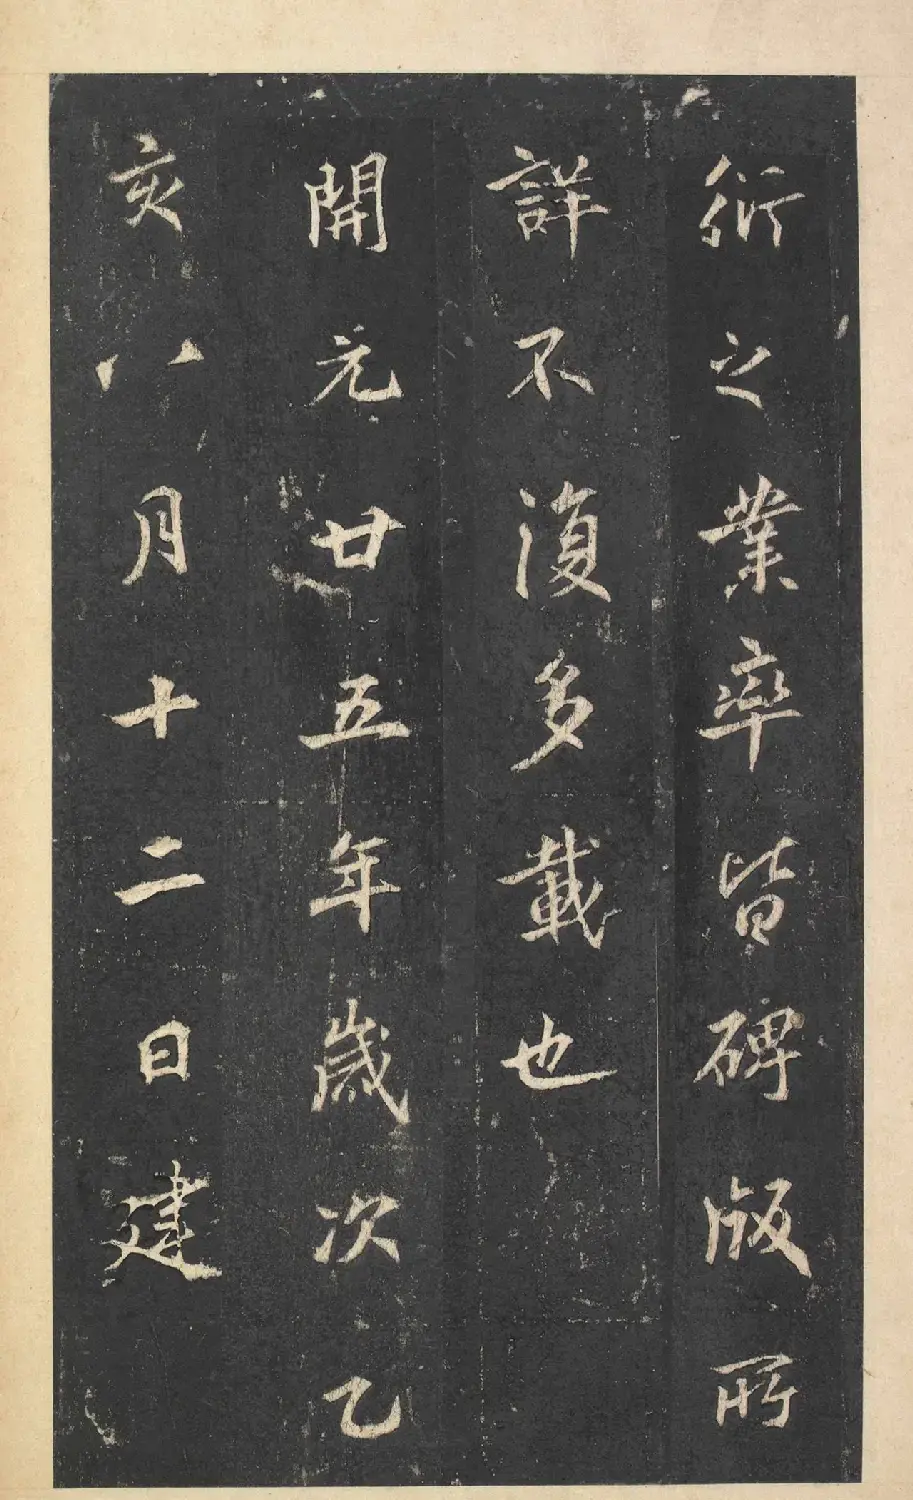 衍之業率皆碑版所
詳不復多載也
開元廿五年歲次乙
亥八月十二日建